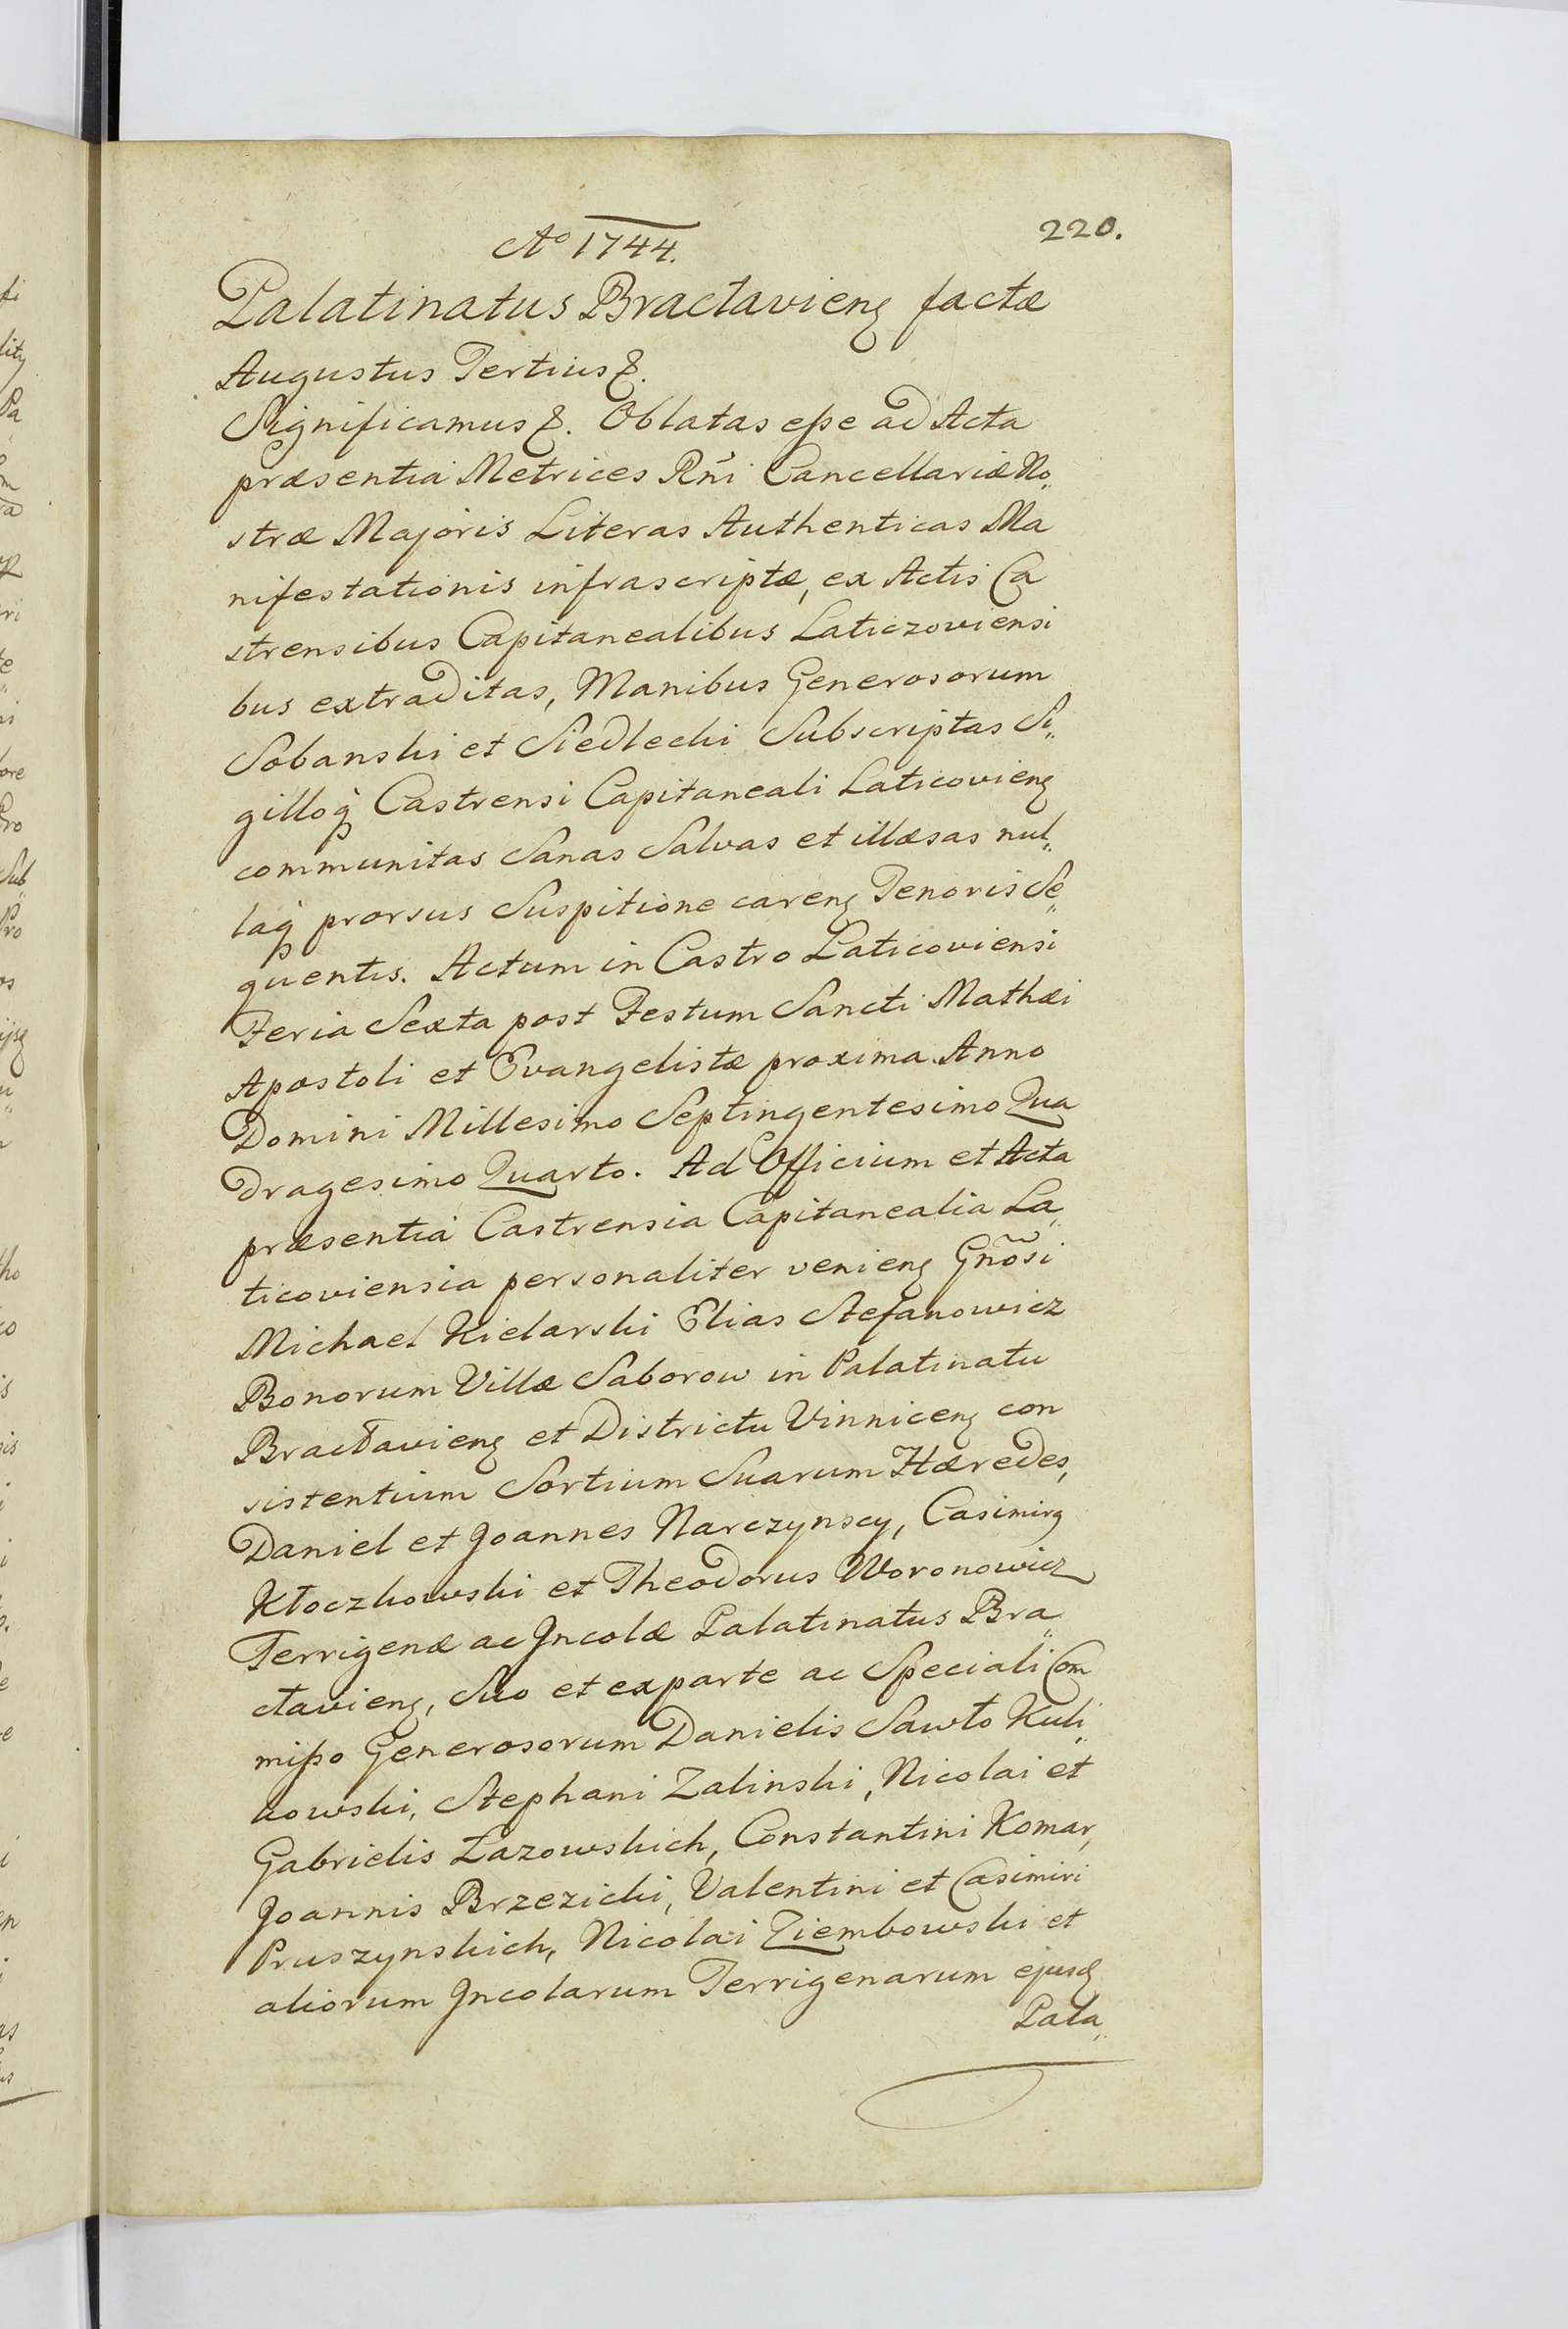 Aº 1744.
220.
Palatinatus Bractavieng factæ
Augustus Tertius &.
Significamus &. Oblatas eße ad Acta
præsentia Metrices Rñi Cancellariæ No„
stræ Majoris Literas Authenticas Ma
nifestationis infrascriptæ, ex Actis Ca
strensibus Capitanealibus Laticzoviensi
bus extraditas, Manibus Generosorum
Sobanski et Siedlecki Subscriptas Si„
gilloq̃ Castrensi Capitaneali Laticovieng
communitas Sanas Salvas et illæsas nul„
laq̃ prorsus Suspitione careng Tenoris Se„
quentis. Actum in Castro Laticoviensi
Feria Sexta post Festum Sancti Mathæi
Apostoli et Evangelistæ proxima Anno
Domini Millesimo Septingentesimo Qua
dragesimo Quarto. Ad Officium et Acta
præsentia Castrensia Capitanealia La„
ticoviensia personaliter venieng Gñosi
Michael Kielarski Elias Stefanowicz
Bonorum Villæ Saborow in Palatinatu
Bractavieng et Districtu Vinniceng con
sistentium Sortium Suarum Hæredes,
Daniel et Joannes Narczynscy, Casimirg
Kłoczkowski et Theodorus Woronowicz
Terrigenæ ac Incolæ Palatinatus Bra„
ctavieng, Suo et ex parte ac Speciali Com
mißo Generosorum Danielis Sawło Kuli„
kowski, Stephani Zalinski, Nicolai et
Gabrielis Łazowskich, Constantini Komar,
Joannis Brzezicki, Valentini et Casimiri
Pruszynskich, Nicolai Ziembowski et
aliorum Incolarum Terrigenarum ejusd̃
Pala„